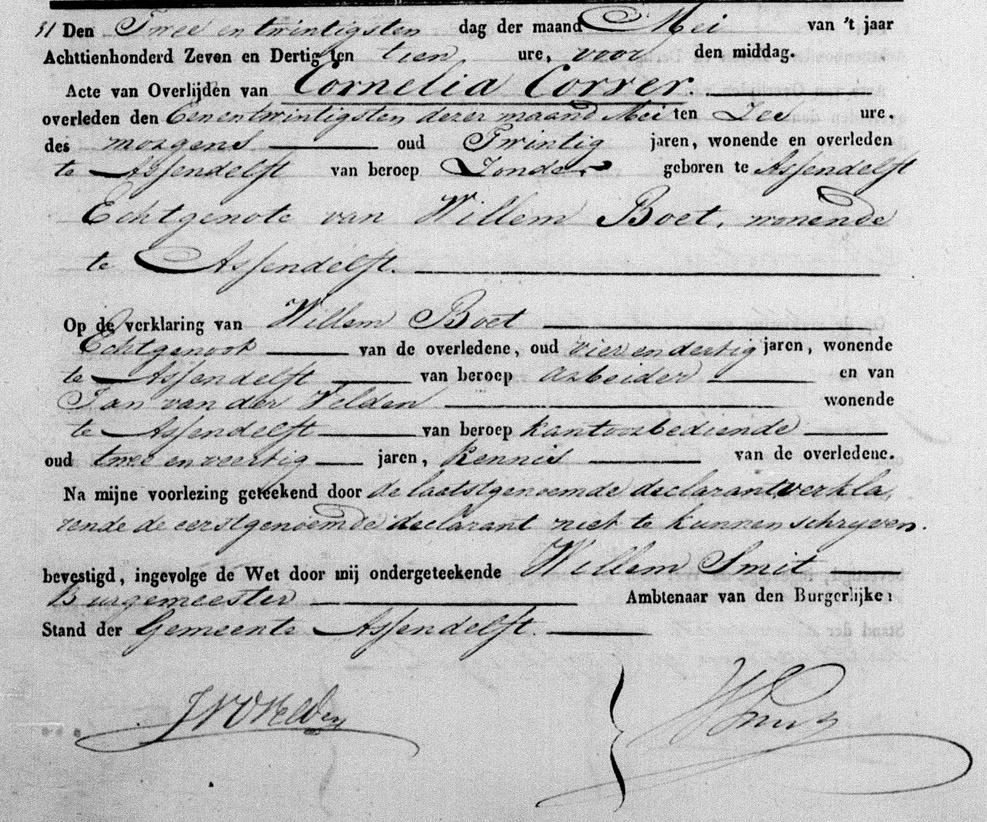 51 Den Twee en twintigsten dag der maand Mei van 't jaar
Achttienhonderd Zeven en Dertig ten tien ure, voor den middag.
Acte van Overlijden van Cornelia Corver
overleden den Eenentwintigsten dezer maand Mei ten Zes ure.
des morgens oud Twintig jaren, wonende en overleden
te Assendelft van beroep Zonder geboren te Assendelft
Echtgenote van Willem Boet, wonende
te Assendelft.
Op de verklaring van Willem Boet
Echtgenoot van de overledene, oud vier en dertig jaren, wonende
te Assendelft van beroep arbeider en van
Jan van der Velden wonende
te Assendelft van beroep kantoorbediende
oud twee en veertig jaren, kennis van de overledene.
Na mijne voorlezing geteekend door de laatstgenoemde declarant verkla,
rende de eerstgenoemde declarant niet te kunnen schryven.
bevestigd, ingevolge de Wet door mij ondergeteekende Willem Smit
Burgemeester Ambtenaar van den Burgerlijken
Stand der Gemeente Assendelft.
JVDVelden WSmit